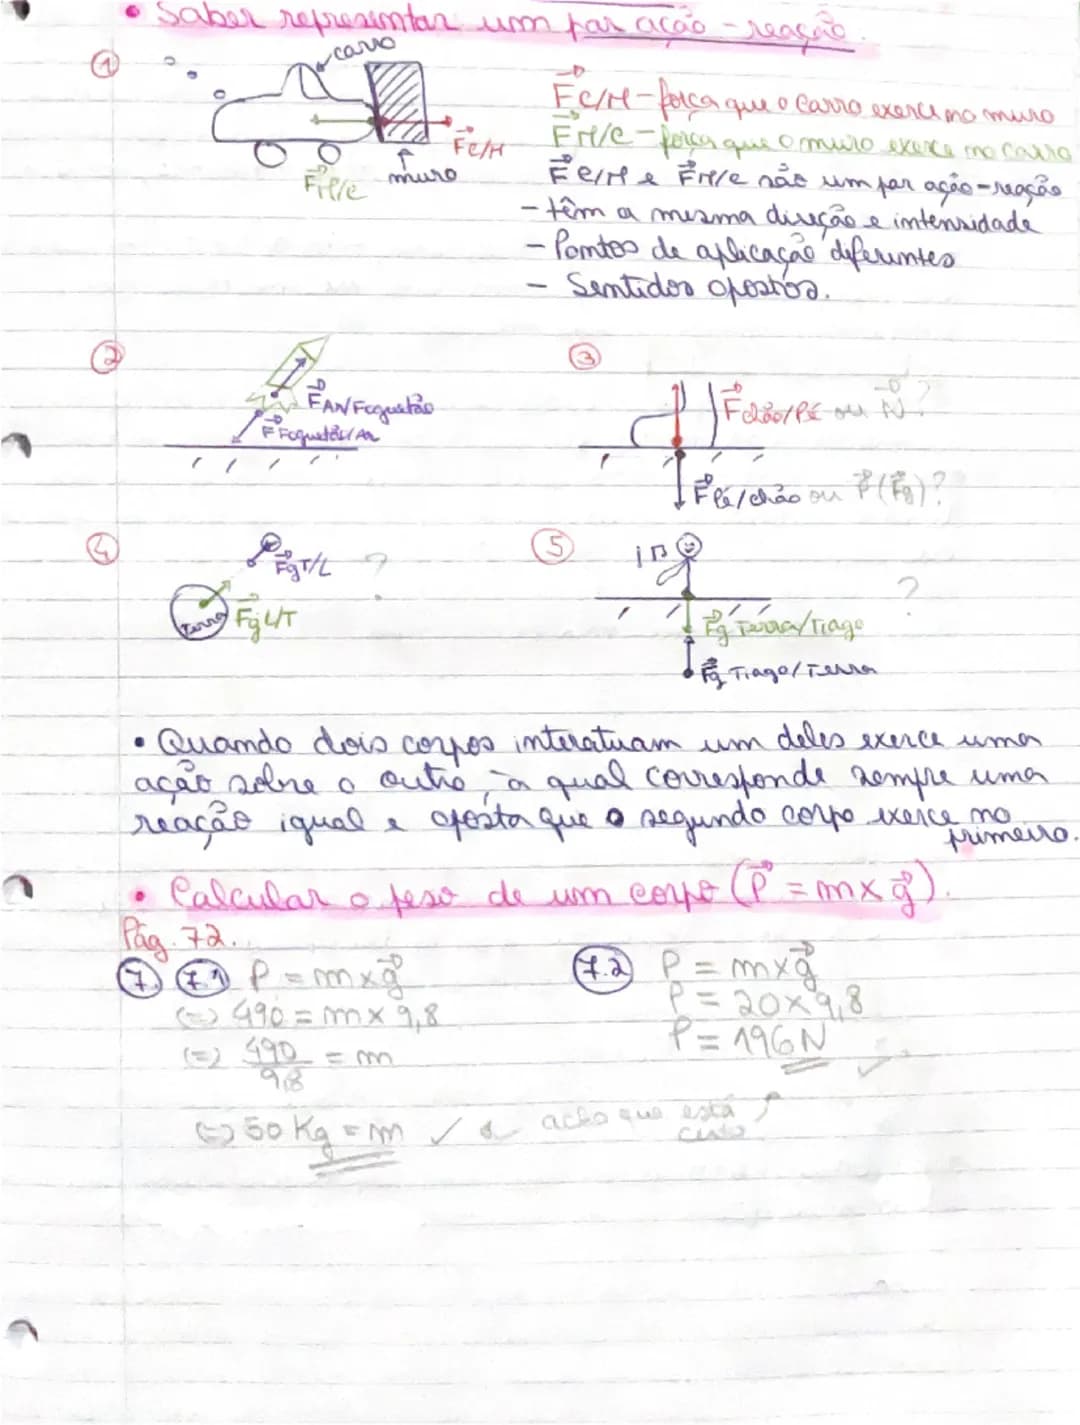 • Saber representar um par ação-reação.
① carro
F⃗C/M
F⃗M/C
muro
F⃗C/M - força que o carro exerce no muro
F⃗M/C - força que o muro exerce no carro
F⃗C/M e F⃗M/C são um par ação-reação
- têm a mesma direção e intensidade
- Pontos de aplicação diferentes
- Sentidos opostos.
②
F⃗Ar/Foguetão
F⃗Foguetão/Ar
③
F⃗chão/Pé ou N⃗?
F⃗Pé/chão ou P⃗(F⃗g)?
④
F⃗gT/L ?
Terra F⃗gL/T
⑤
?
F⃗g Terra/Tiago
F⃗g Tiago/Terra
• Quando dois corpos interatuam um deles exerce uma
ação sobre o outro, à qual corresponde sempre uma
reação igual e oposta que o segundo corpo exerce no
primeiro.
• Calcular o peso de um corpo (P⃗ = m x g⃗).
Pág. 72.
7. 7.1 P = m x g⃗
(=) 490 = m x 9,8
(=) 490/9,8 = m
(=) 50 Kg = m ✓ acho que está certo
7.2 P = m x g⃗
P = 20 x 9,8
P = 196 N ✓